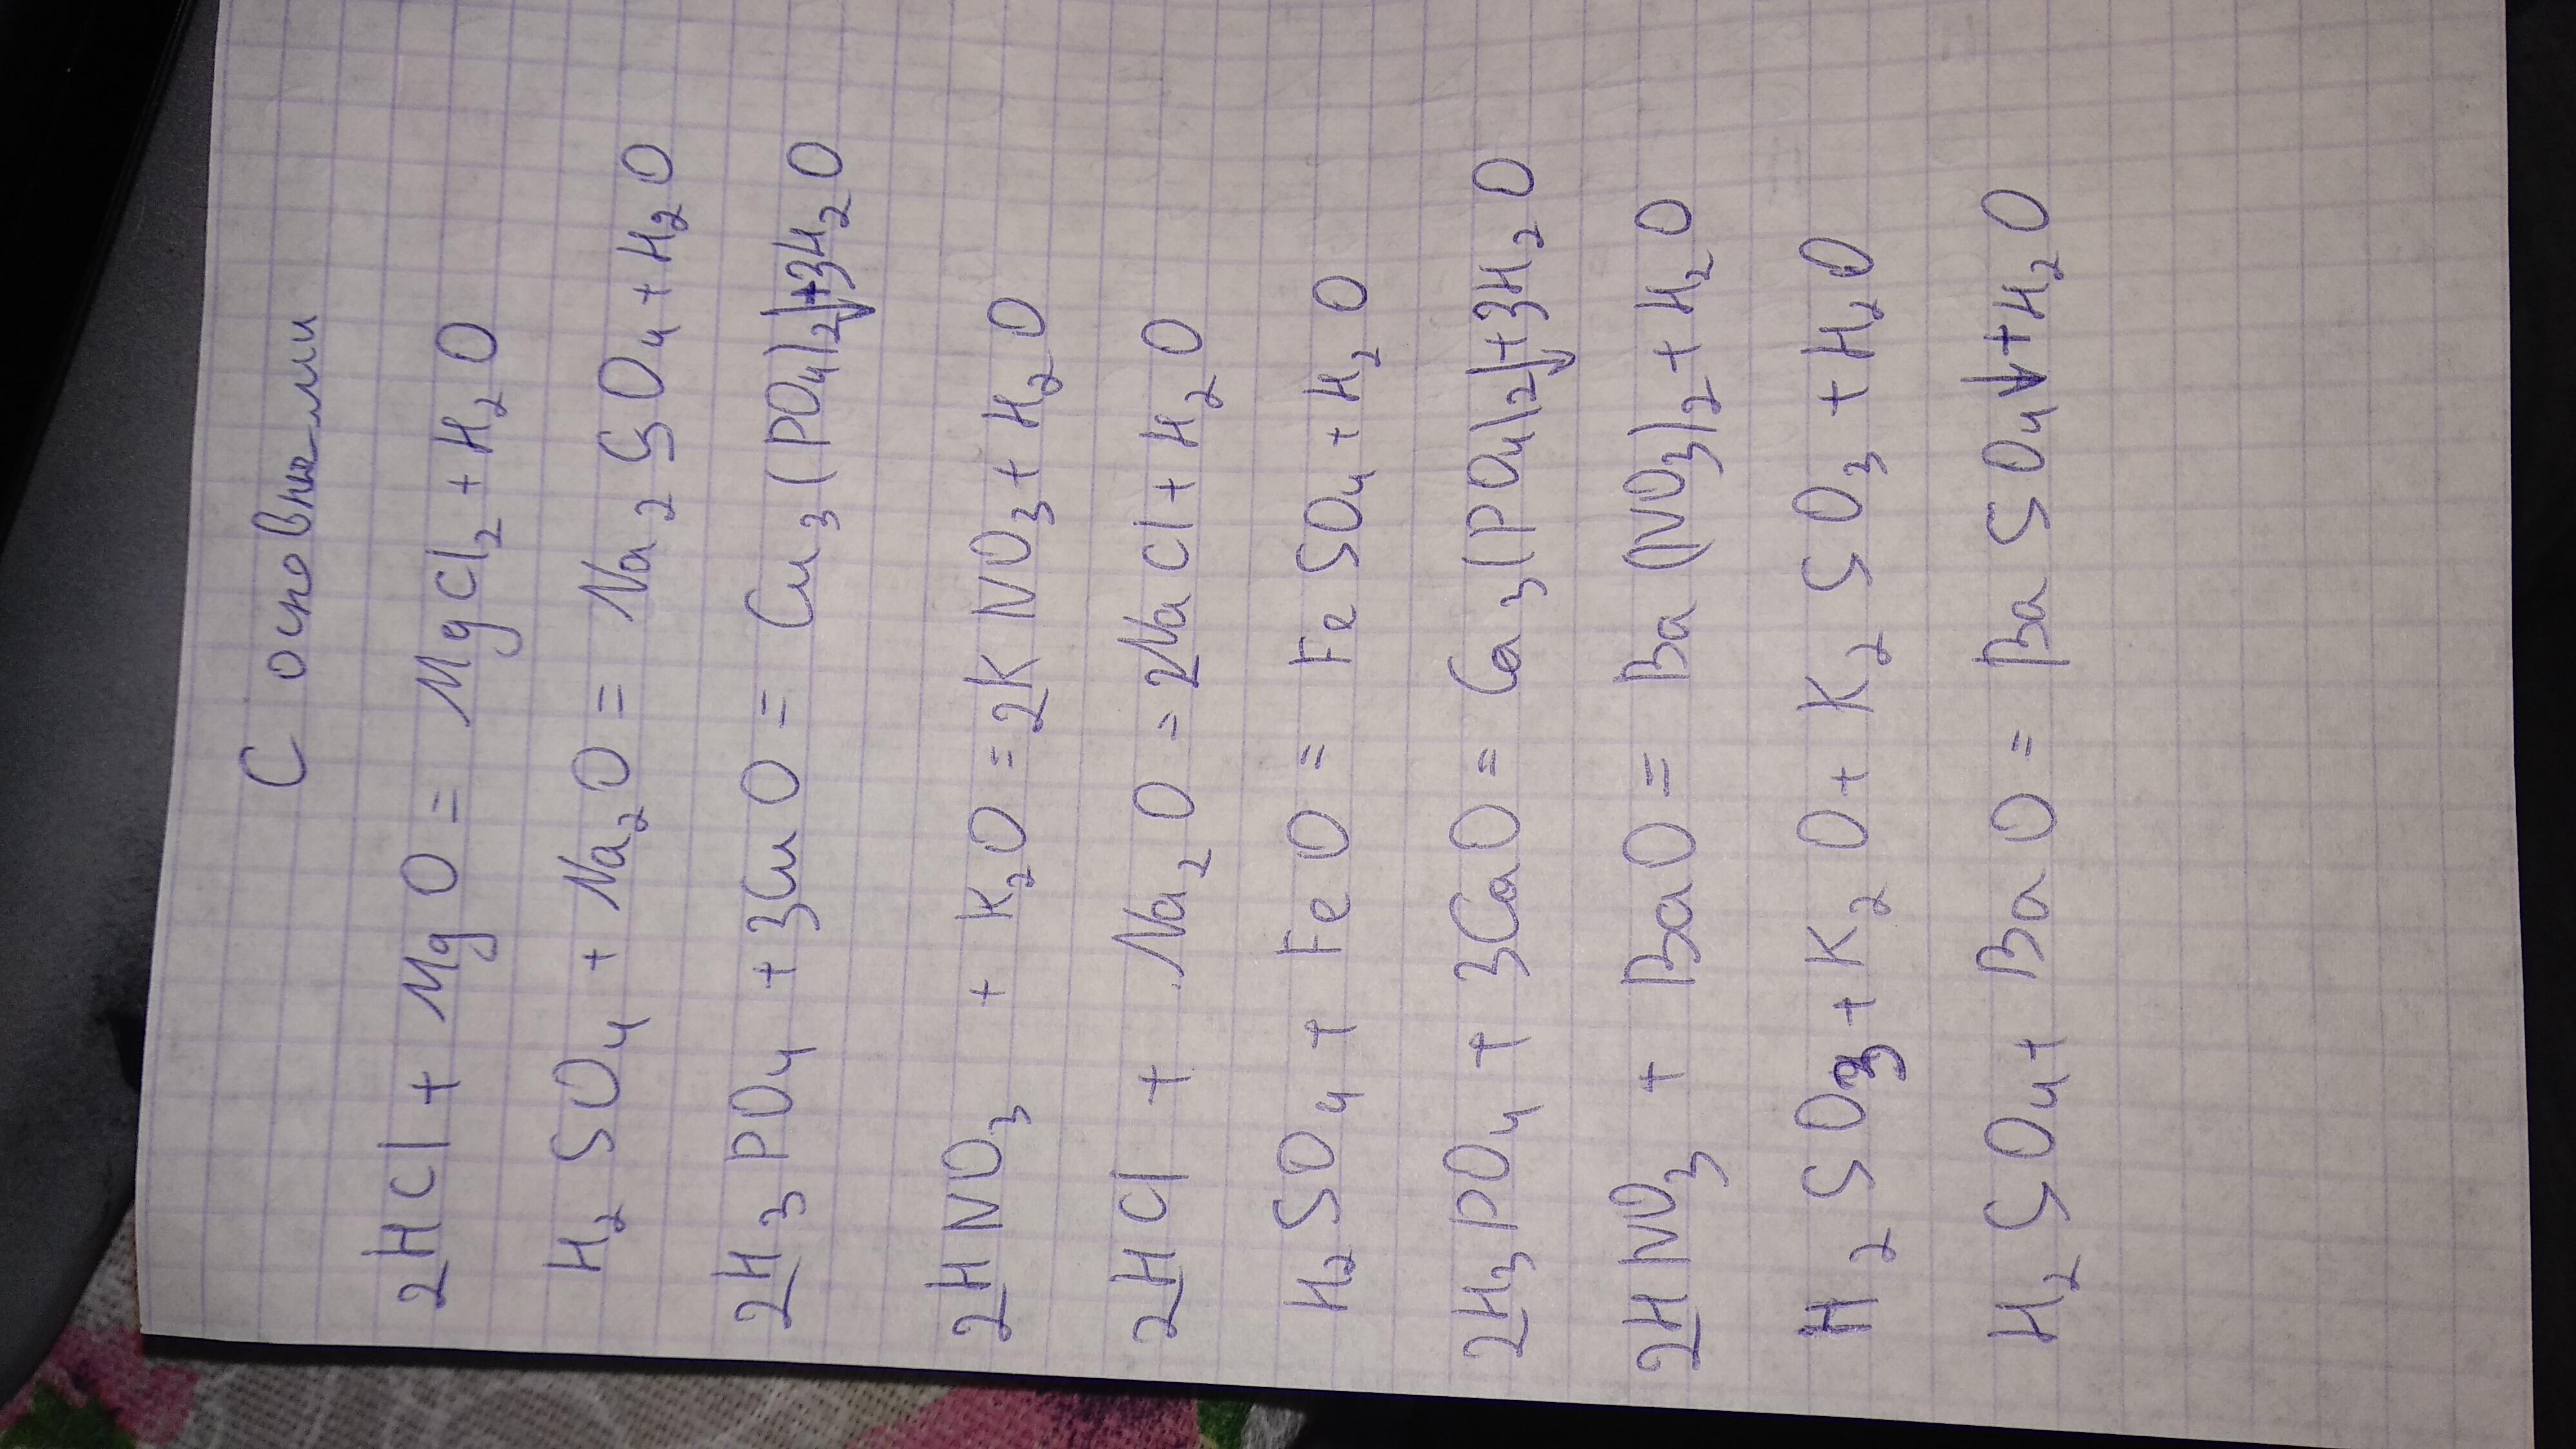 С основными
2HCl + MgO = MgCl₂ + H₂O
H₂SO₄ + Na₂O = Na₂SO₄ + H₂O
2H₃PO₄ + 3CuO = Cu₃(PO₄)₂↓ + 3H₂O
2HNO₃ + K₂O = 2KNO₃ + H₂O
2HCl + Na₂O = 2NaCl + H₂O
H₂SO₄ + FeO = FeSO₄ + H₂O
2H₃PO₄ + 3CaO = Ca₃(PO₄)₂↓ + 3H₂O
2HNO₃ + BaO = Ba(NO₃)₂ + H₂O
H₂SO₃ + K₂O + K₂SO₃ + H₂O
H₂SO₄ + BaO = BaSO₄↓ + H₂O